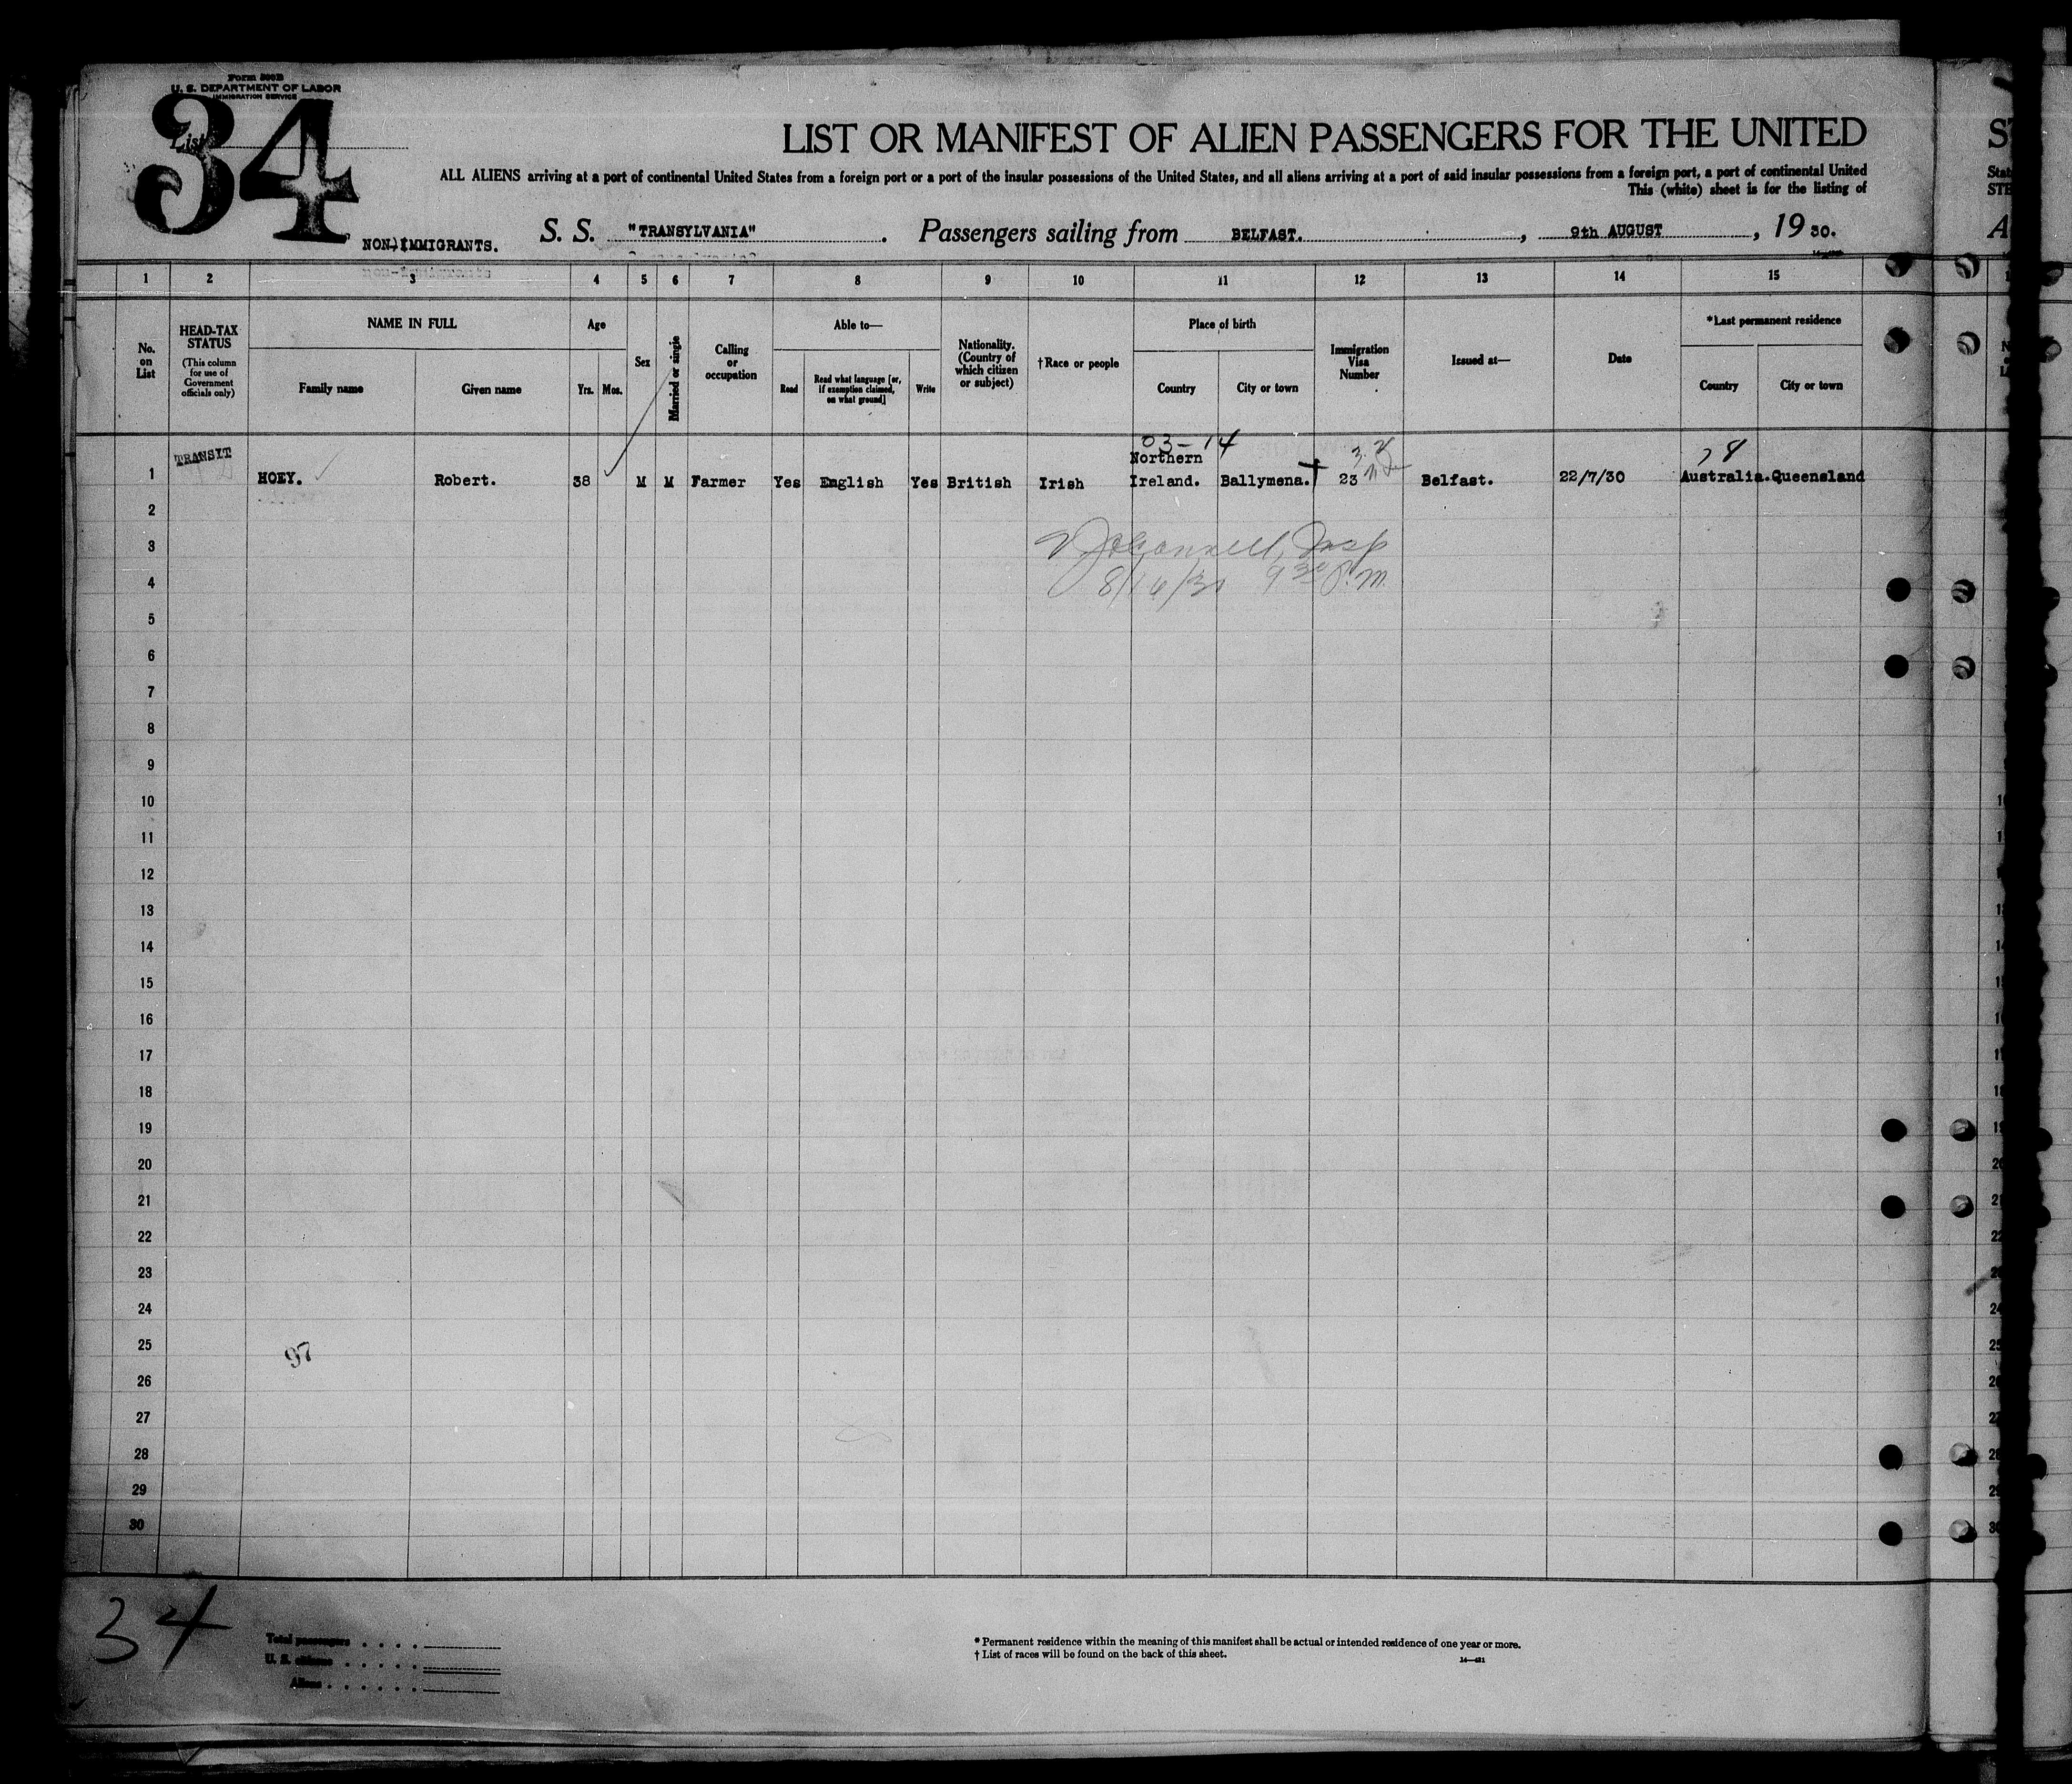 Form 500B
U. S. DEPARTMENT OF LABOR
IMMIGRATION SERVICE
List
34
LIST OR MANIFEST OF ALIEN PASSENGERS FOR THE UNITED
ALL ALIENS arriving at a port of continental United States from a foreign port or a port of the insular possessions of the United States, and all aliens arriving at a port of said insular possessions from a foreign port, a port of continental United
This (white) sheet is for the listing of
NON-IMMIGRANTS. S. S. "TRANSYLVANIA". Passengers sailing from BELFAST., 9th AUGUST, 1930.
1 2 3 4 5 6 7 8 9 10 11 12 13 14 15
No. on List
HEAD-TAX STATUS
(This column for use of Government officials only)
NAME IN FULL
Family name Given name
Age
Yrs. Mos.
Sex
Married or single
Calling or occupation
Able to—
Read Read what language [or, if exemption claimed, on what ground] Write
Nationality. (Country of which citizen or subject)
†Race or people
Place of birth
Country City or town
Immigration Visa Number
Issued at—
Date
*Last permanent residence
Country City or town
03-14
1 TRANSIT HOEY. Robert. 38 M M Farmer Yes English Yes British Irish Northern Ireland. Ballymena. 23 Belfast. 22/7/30 Australia. Queensland
2
3
4 8/16/30 9 30 P.M.
5
6
7
8
9
10
11
12
13
14
15
16
17
18
19
20
21
22
23
24
25
97
26
27
28
29
30
34
Total passengers
U. S. citizens
Aliens
* Permanent residence within the meaning of this manifest shall be actual or intended residence of one year or more.
† List of races will be found on the back of this sheet.